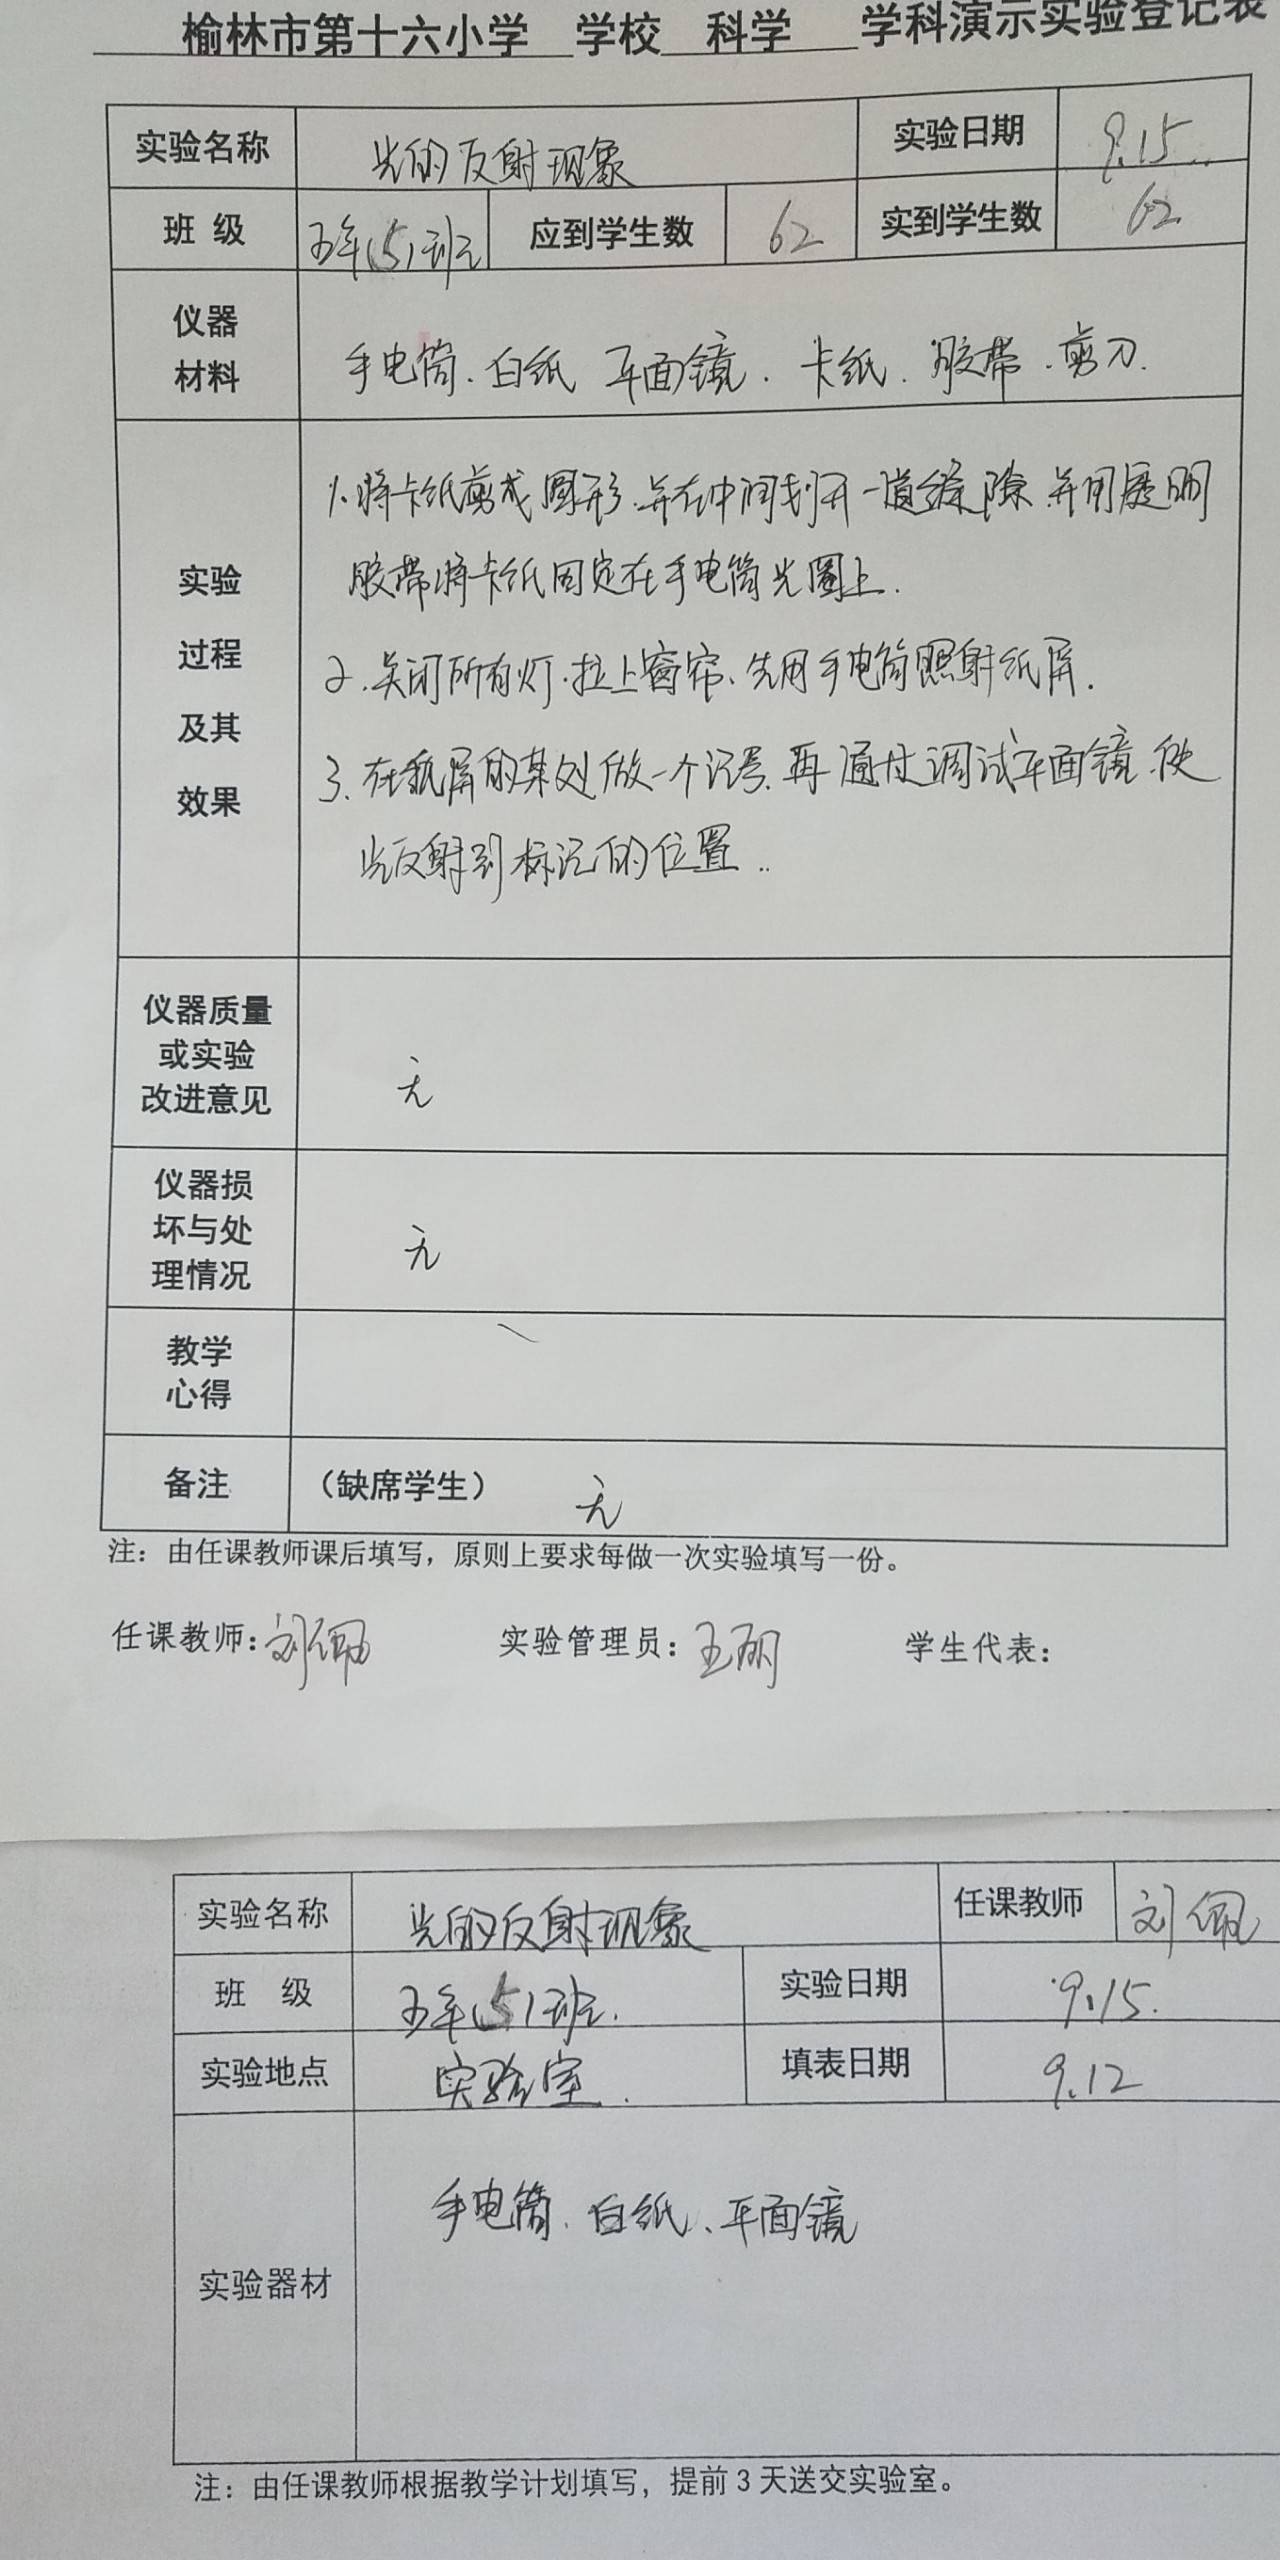 榆林市第十六小学 学校 科学 学科演示实验登记表
实验名称 光的反射现象 实验日期 9.15
班 级 五年(5)班 应到学生数 62 实到学生数 62
仪器
材料
手电筒、白纸 平面镜、卡纸、胶带、剪刀.
实验
过程
及其
效果
1.将卡纸剪成圆形.并在中间划开一道缝隙 并用透明
胶带将卡纸固定在手电筒光圈上.
2.关闭所有灯.拉上窗帘、先用手电筒照射纸屏.
3.在纸屏的某处做一个记号.再通过调试平面镜.使
光反射到标记的位置..
仪器质量
或实验
改进意见
无
仪器损
坏与处
理情况
无
教学
心得
备注 （缺席学生） 无
注：由任课教师课后填写，原则上要求每做一次实验填写一份。
任课教师:刘佩 实验管理员：王丽 学生代表：
实验名称 光的反射现象 任课教师 刘佩
班 级 五年(5)班. 实验日期 9.15.
实验地点 实验室. 填表日期 9.12
实验器材 手电筒、白纸、平面镜
注：由任课教师根据教学计划填写，提前 3 天送交实验室。